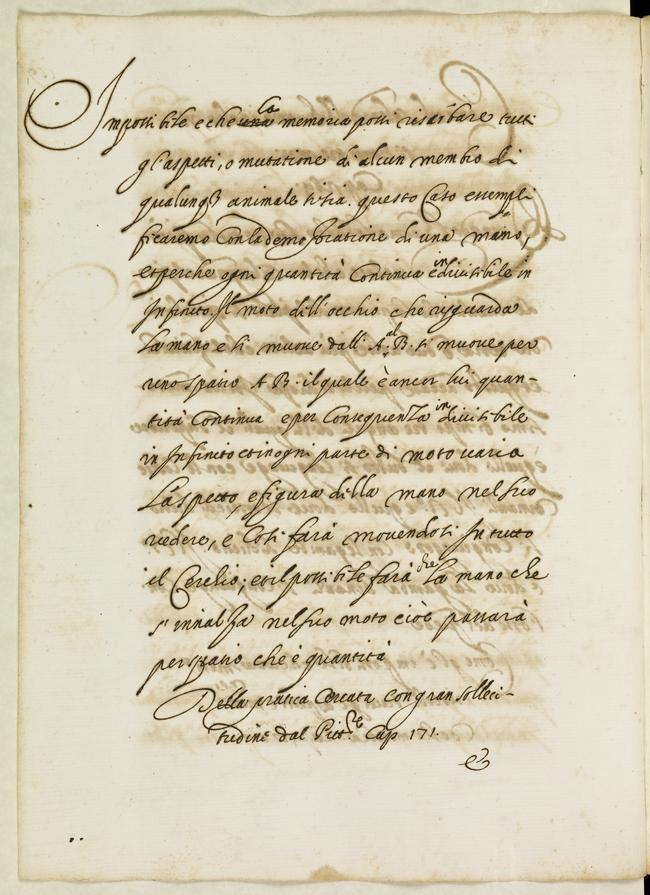 Impossibile e che una la memoria possi risarbare tutti
gl'aspetti, o mutatione di alcun membro di
qualunq3 animale si sia. questo Caso essempli
ficaremo Con la demostratione di una mano,
et perche ogni quantità Continua è indivisibile in
Infinito. Il moto dell'occhio che risguarda
La mano e si muove dall'A. al B. si muove per
uno spatio A B. il quale è ancor lui quan-
tità Continua e per Conseguenza indivisibile
in Infinito et in ogni parte di moto varia
L'aspetto, e figura della mano nel suo
vedere, e Così farà movendosi In tutto
il Cerchio; et il possibile farà che La mano che
s'innalza nel suo moto cioè passarà
per spatio che è quantità
Della pratica Cercata con gran solleci-
tudine dal Pitt.re Cap. 171.